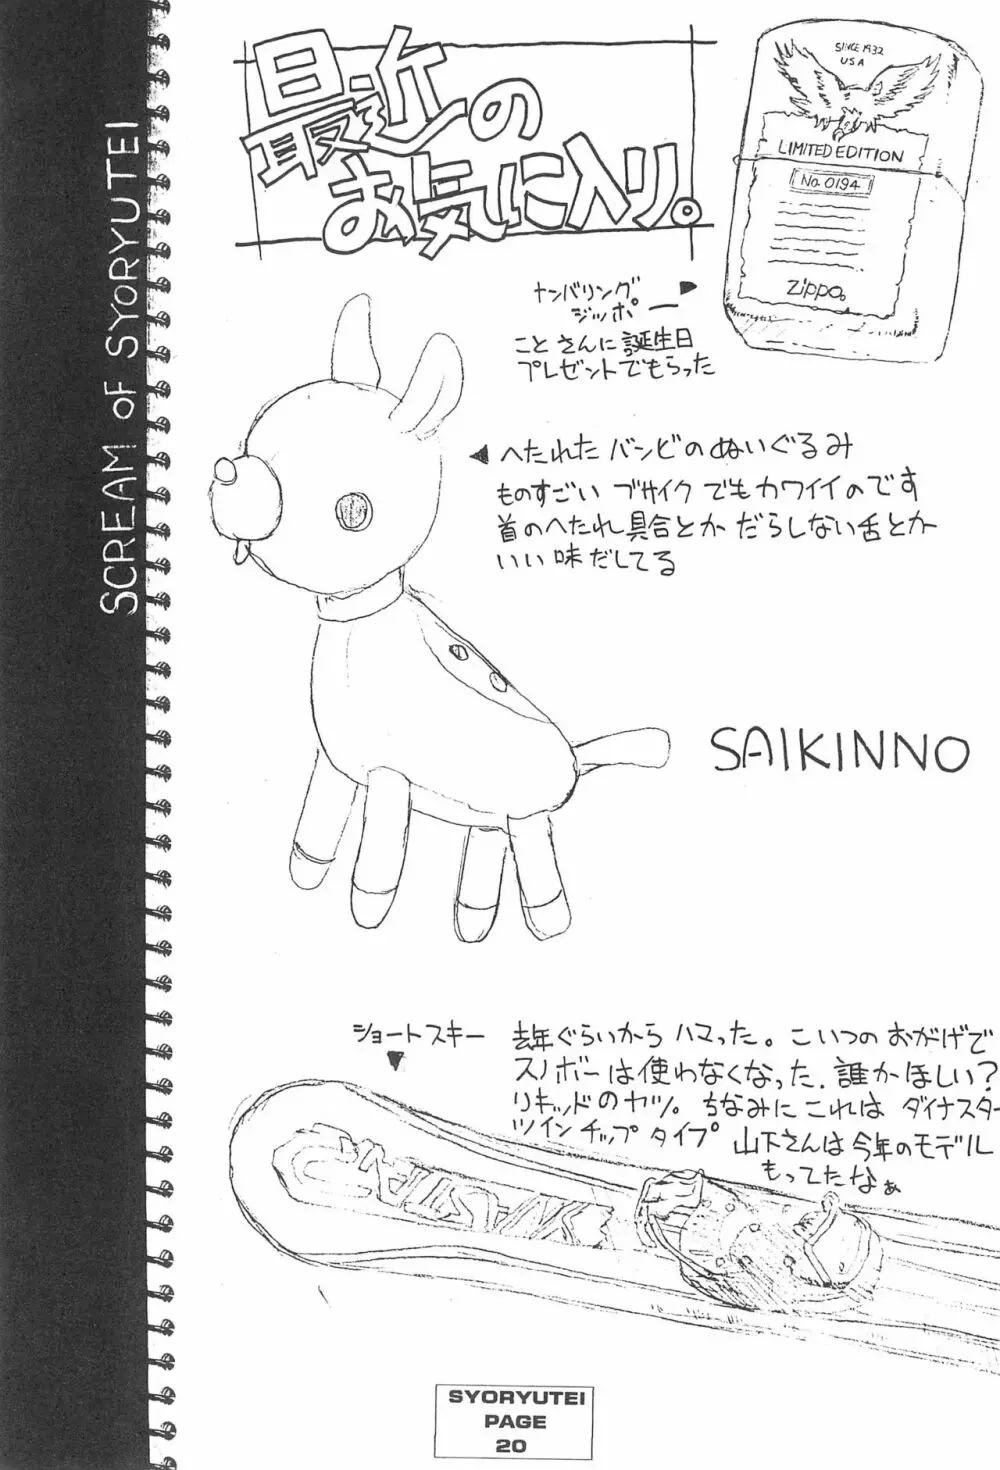 SCREAM OF SYORYUTEI
最近の
お気に入り。
SINCE 1932
USA
LIMITED EDITION
No. 0194
Zippo
ナンバリング
ジッポー
ことさんに誕生日
プレゼントでもらった
へたれた バンビのぬいぐるみ
ものすごい ブサイク でもカワイイのです
首のへたれ具合とか だらしない舌とか
いい味だしてる
SAIKINNO
ショートスキー
去年ぐらいから ハマった。こいつの おかげで
スノボーは使わなくなった. 誰かほしい?
リキッドのヤツ。ちなみに これは ダイナスター
ツインチップ タイプ 山下さんは今年のモデル
もってたなぁ
SYORYUTEI
PAGE
20